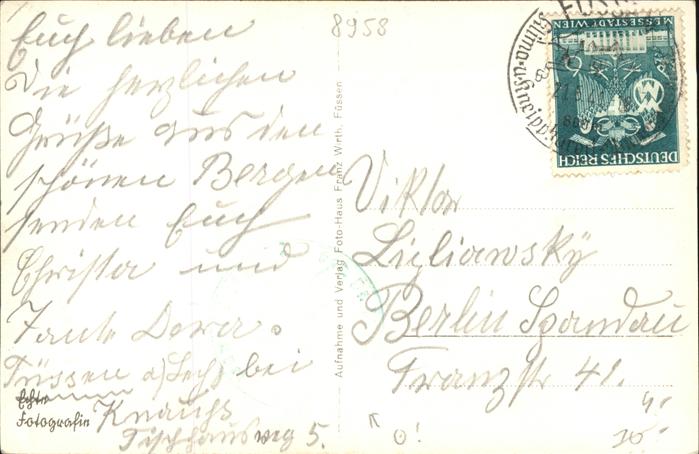 8958
Euch lieben
die herzlichen
Grüße aus den
schönen Bergen
senden Euch
Christa und
Tante Dora.
Füssen a/Lech bei
Knauß
Fischhausweg 5.
Echte
Fotografie
Aufnahme und Verlag Foto-Haus Franz Wirth, Füssen
MESSESTADT WIEN
DEUTSCHES REICH
Viktor
Berlin Spandau
Franzstr 41.